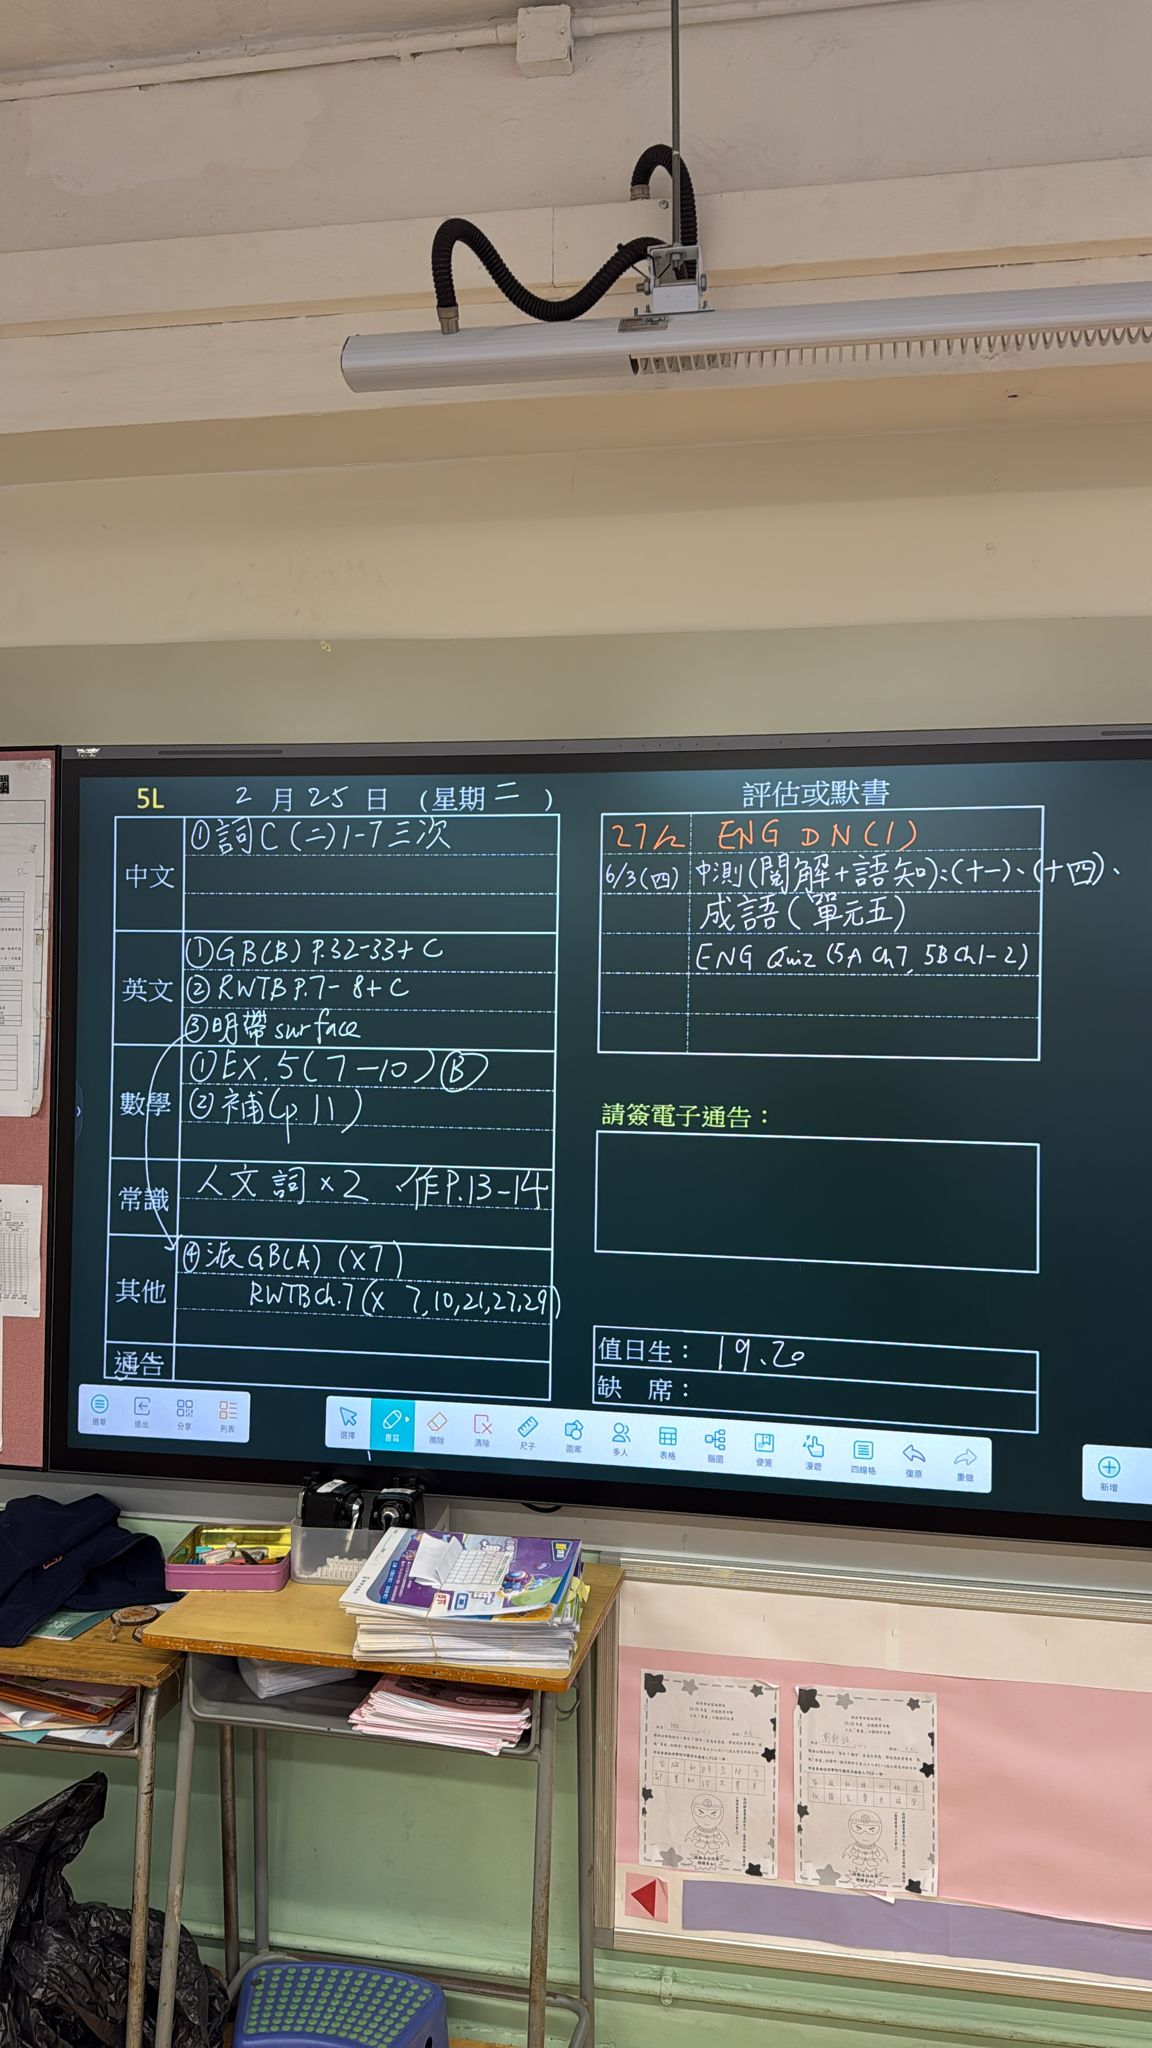 5L 2月25日(星期二)
中文
①詞C(二)1-7三次
英文
①GB(B) P.32-33+C
②RWTB P.7-8+C
③明帶surface
數學
①EX.5(7-10)Ⓑ
②補(p.11)
常識
人文詞×2 作P.13-14
其他
④派GB(A) (x7)
RWTBCh.7(x 7,10,21,27,29)
通告
評估或默書
27/2 ENG DN(1)
6/3(四) 中測(閱解+語知):(十一)、(十四)、
成語(單元五)
ENG Quiz (5A Ch7, 5B Ch1-2)
請簽電子通告:
值日生: 19.20
缺 席:
選單 退出 分享 列表
選擇 書寫 擦除 清除 尺子 圖案 多人 表格 腦圖 便簽 漫遊 四線格 復原 重做
新增